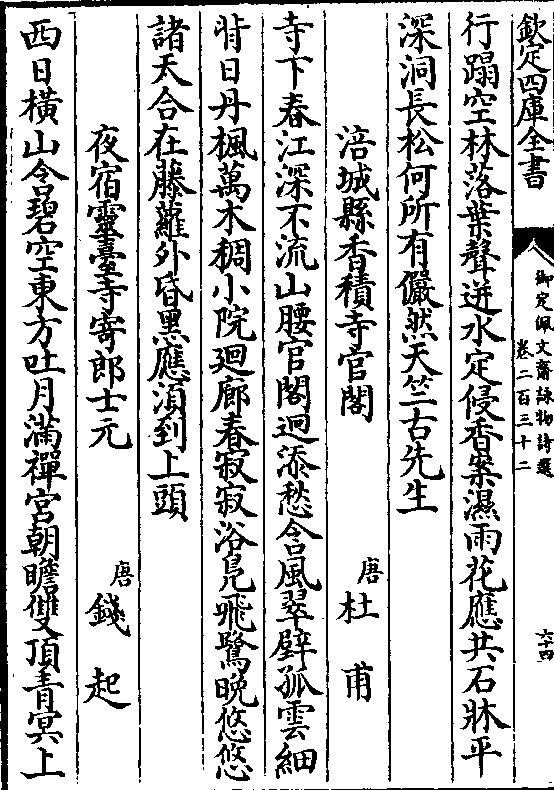 欽定四庫全書
御定佩文齋詠物詩選
卷二百三十二
六十四
行蹋空林落葉聲迸水定侵香案濕雨花應共石牀平
深洞長松何所有儼然天竺古先生
涪城縣香積寺官閣
唐杜甫
寺下春江深不流山腰官閣迥添愁含風翠壁孤雲細
背日丹楓萬木稠小院廻廊春寂寂浴鳧飛鷺晚悠悠
諸天合在藤蘿外昏黑應須到上頭
夜宿靈臺寺寄郎士元
唐錢起
西日橫山含碧空東方吐月滿禪宮朝瞻雙頂青冥上